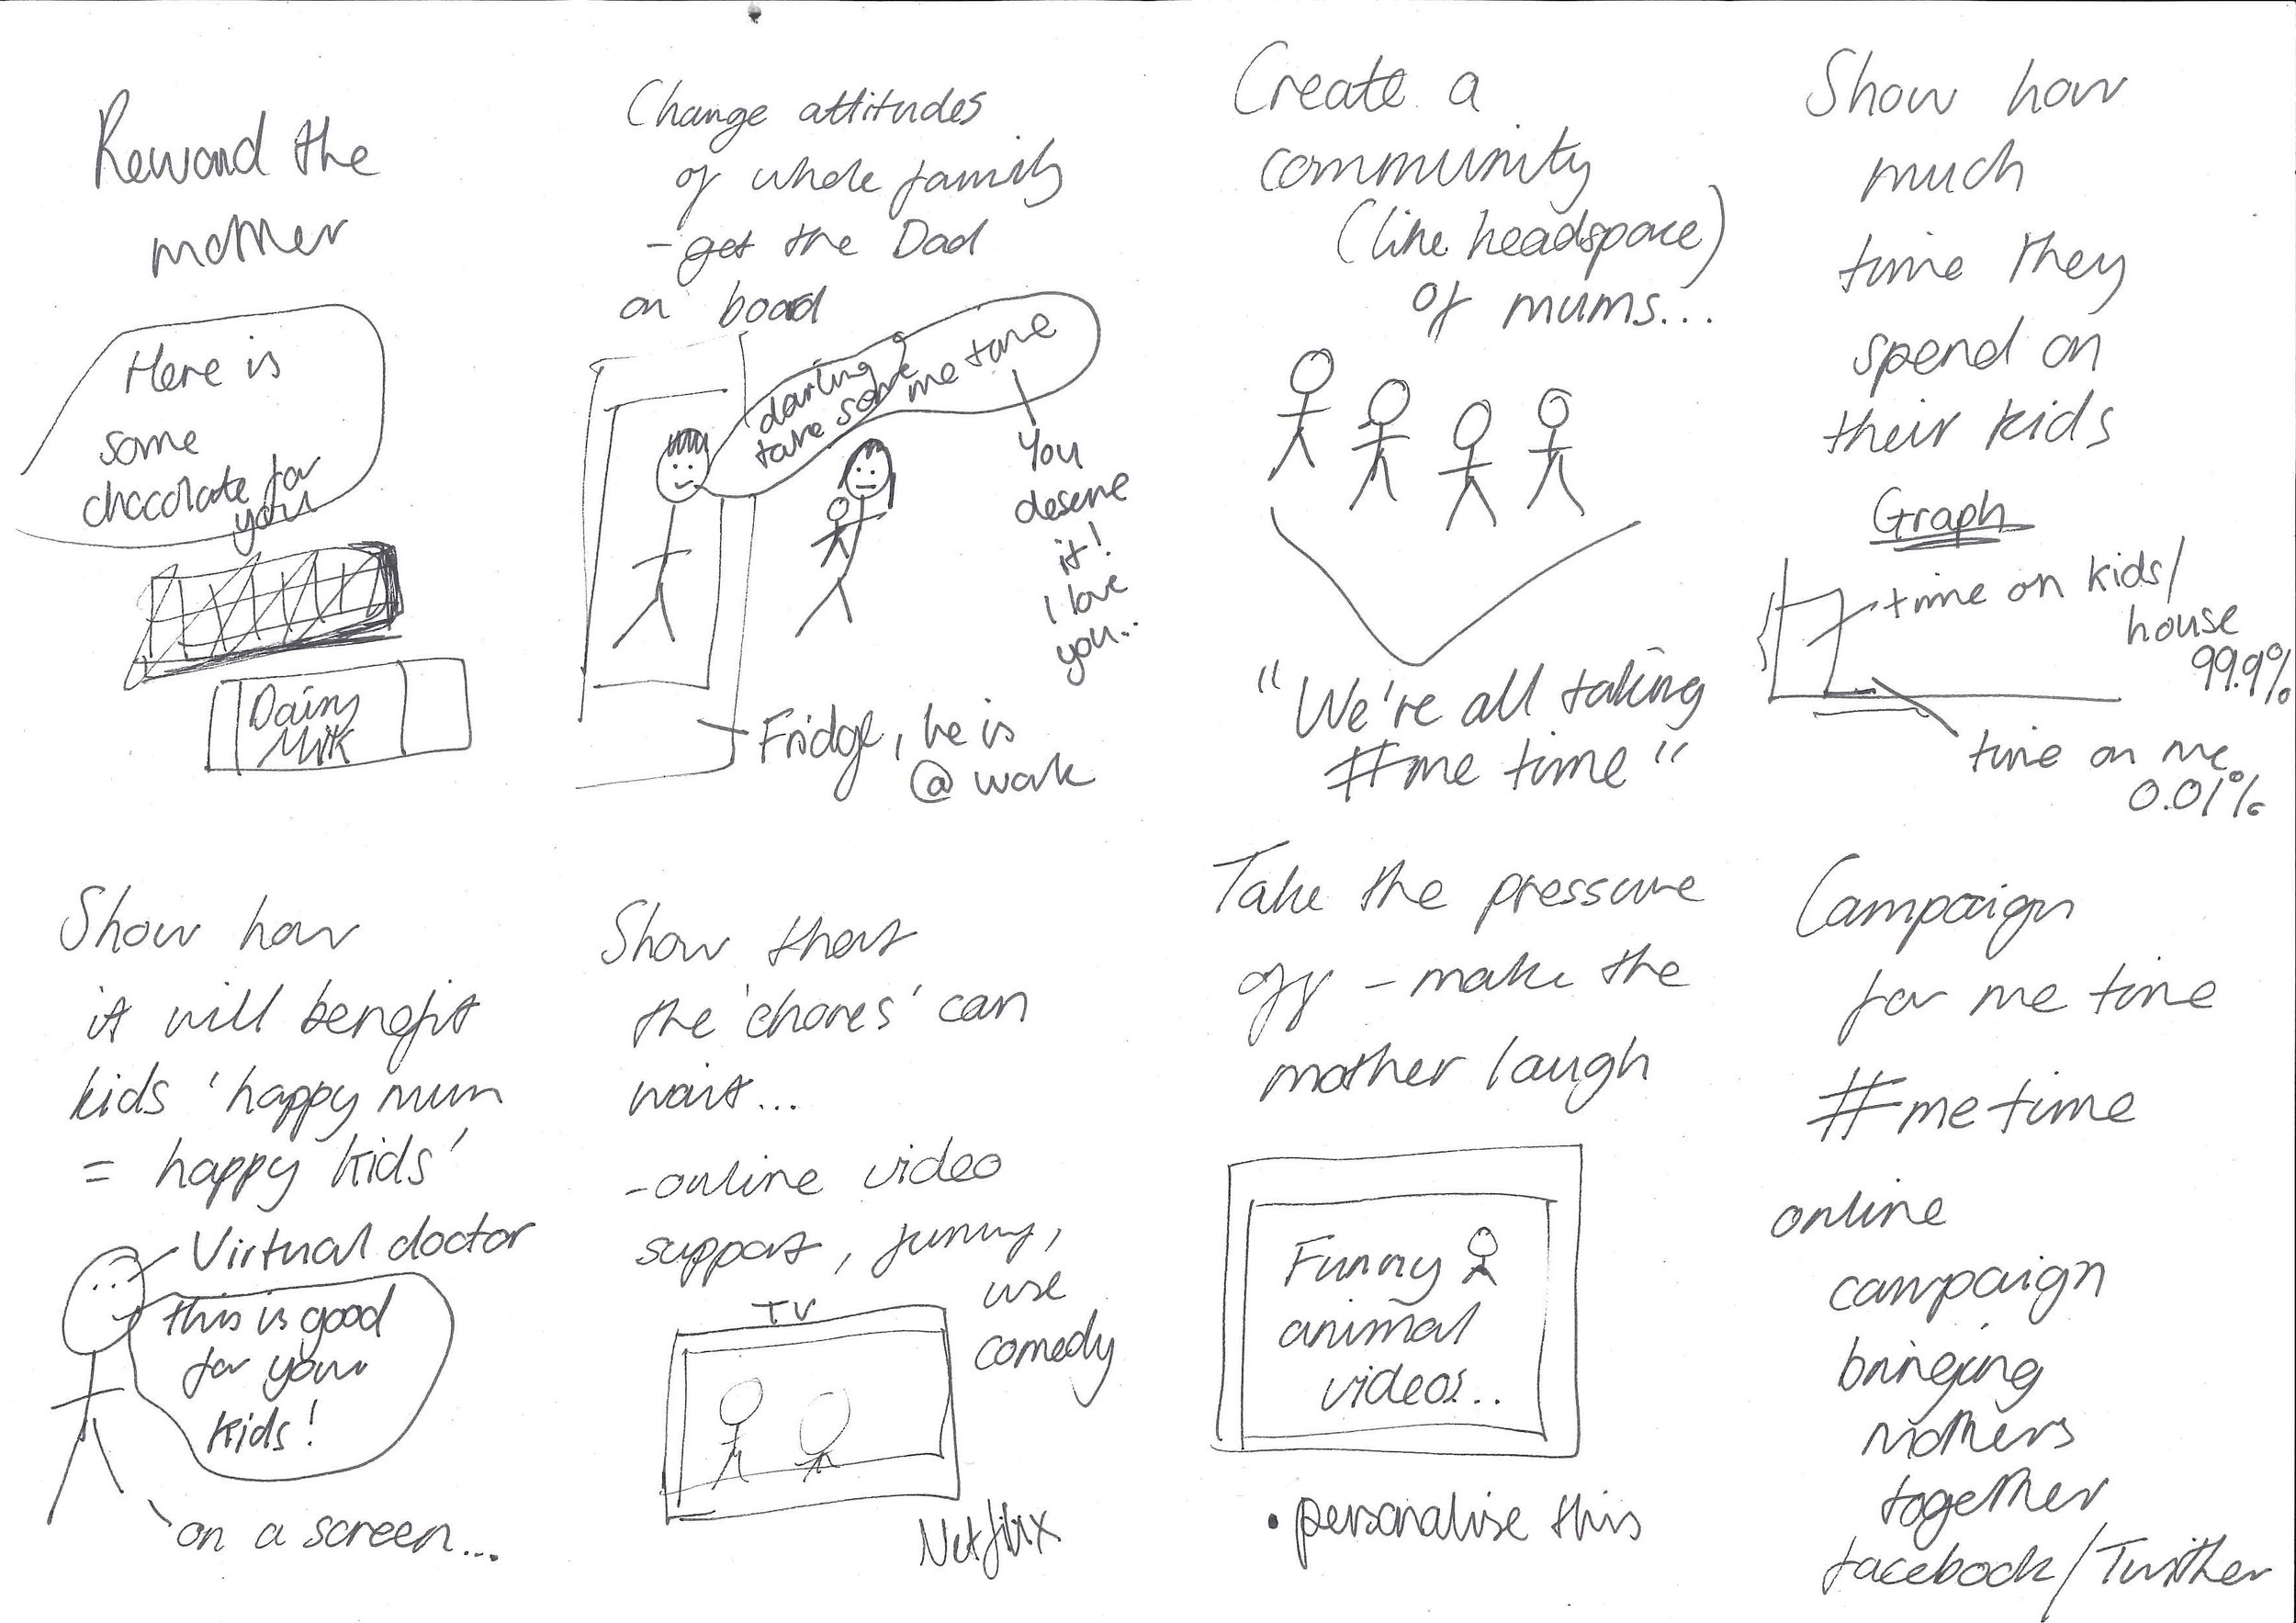 Reward the
mother
Here is
some
chocolate for
you
Dairy
Milk
Change attitudes
of whole family
- get the Dad
on board
darling
take some me time
You
deserve
it!
I love
you..
Fridge, he is
@ work
Create a
community
(like headspace)
of mums...
"We're all taking
#me time"
Show how
much
time they
spend on
their kids
Graph
time on kids/
house
99.9%
time on me
0.01%
Show how
it will benefit
kids 'happy mum
= happy kids'
Virtual doctor
this is good
for your
kids!
on a screen...
Show that
the 'chores' can
wait...
- online video
support, funny,
use
comedy
TV
Netflix
Take the pressure
off - make the
mother laugh
Funny
animal
videos...
• personalise this
Campaign
for me time
#metime
online
campaign
bringing
mothers
together
facebook/Twitter